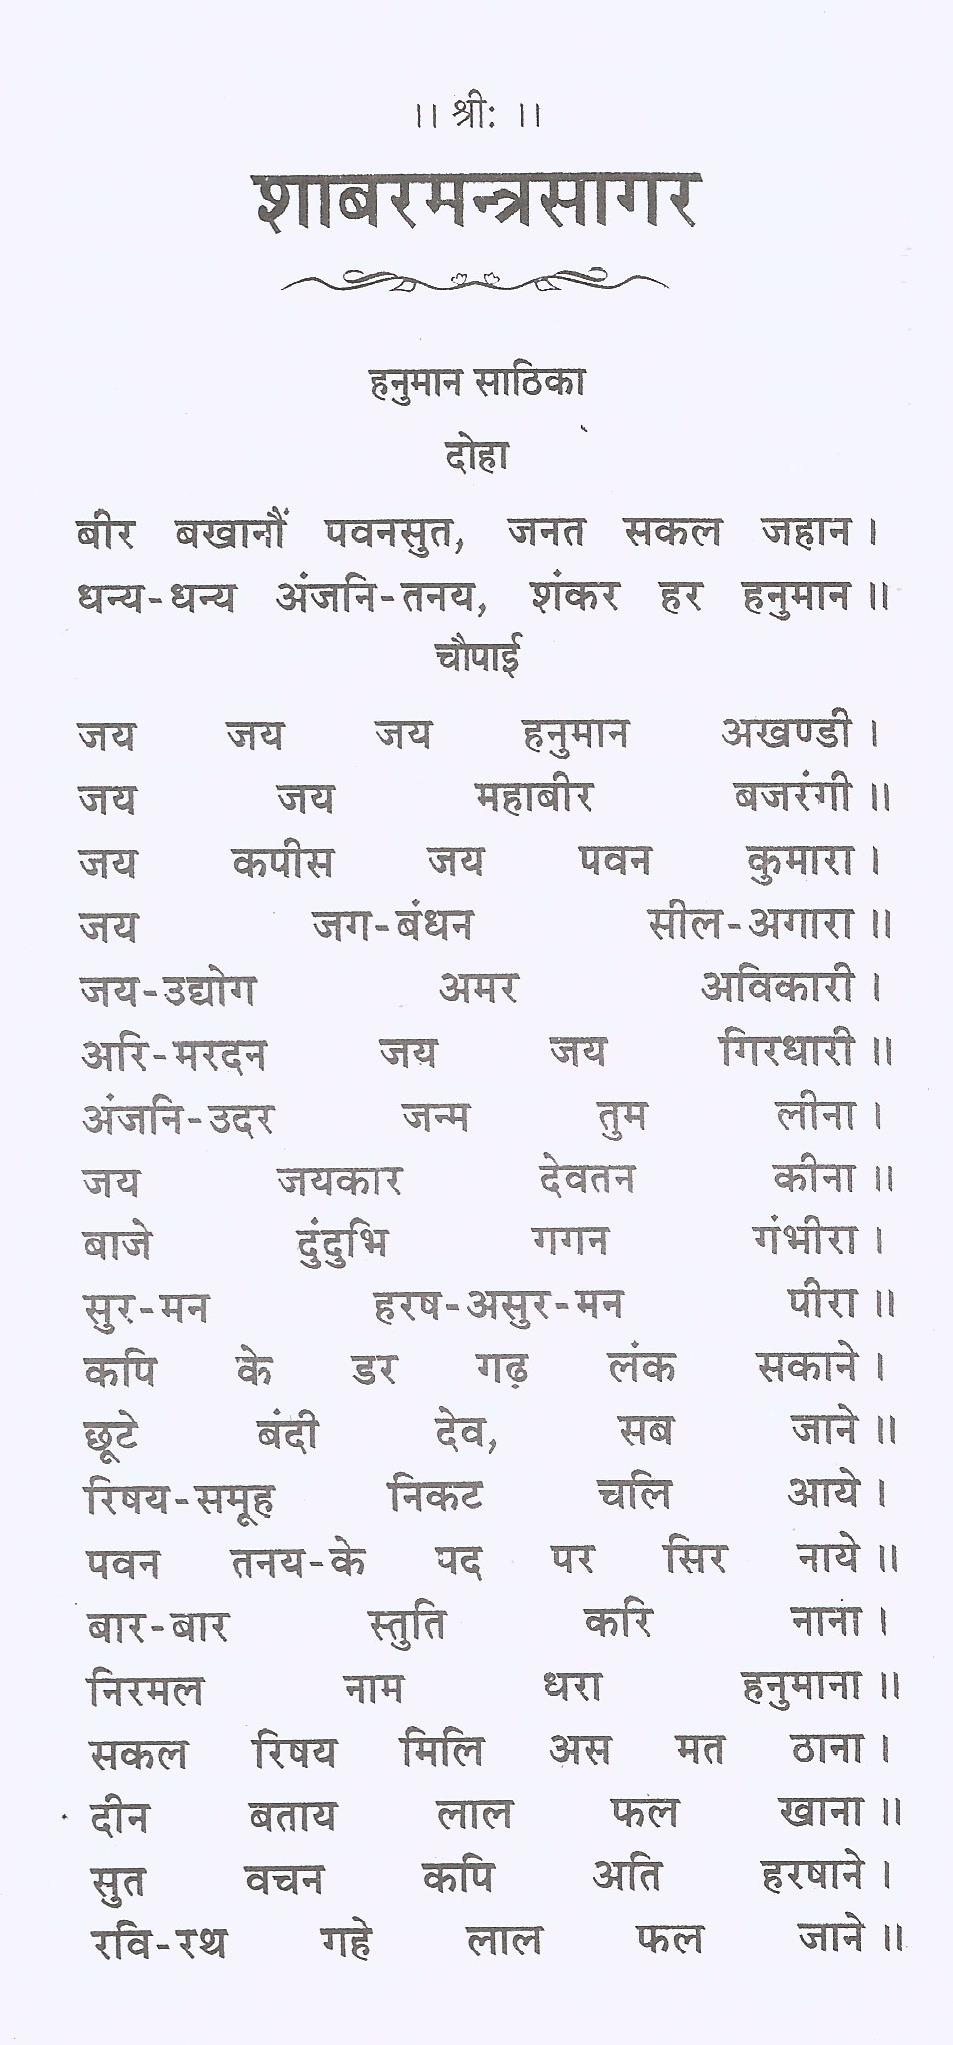 ।। श्रीः ।।
शाबरमन्त्रसागर
हनुमान साठिका
दोहा
बीर बखानौं पवनसुत, जनत सकल जहान ।
धन्य-धन्य अंजनि-तनय, शंकर हर हनुमान ।।
चौपाई
जय जय जय हनुमान अखण्डी ।
जय जय महाबीर बजरंगी ।।
जय कपीस जय पवन कुमारा ।
जय जग-बंधन सील-अगारा ।।
जय-उद्योग अमर अविकारी ।
अरि-मरदन जय जय गिरधारी ।।
अंजनि-उदर जन्म तुम लीना ।
जय जयकार देवतन कीना ।।
बाजे दुंदुभि गगन गंभीरा ।
सुर-मन हरष-असुर-मन पीरा ।।
कपि के डर गढ़ लंक सकाने ।
छूटे बंदी देव, सब जाने ।।
रिषय-समूह निकट चलि आये ।
पवन तनय-के पद पर सिर नाये ।।
बार-बार स्तुति करि नाना ।
निरमल नाम धरा हनुमाना ।।
सकल रिषय मिलि अस मत ठाना ।
दीन बताय लाल फल खाना ।।
सुत वचन कपि अति हरषाने ।
रवि-रथ गहे लाल फल जाने ।।